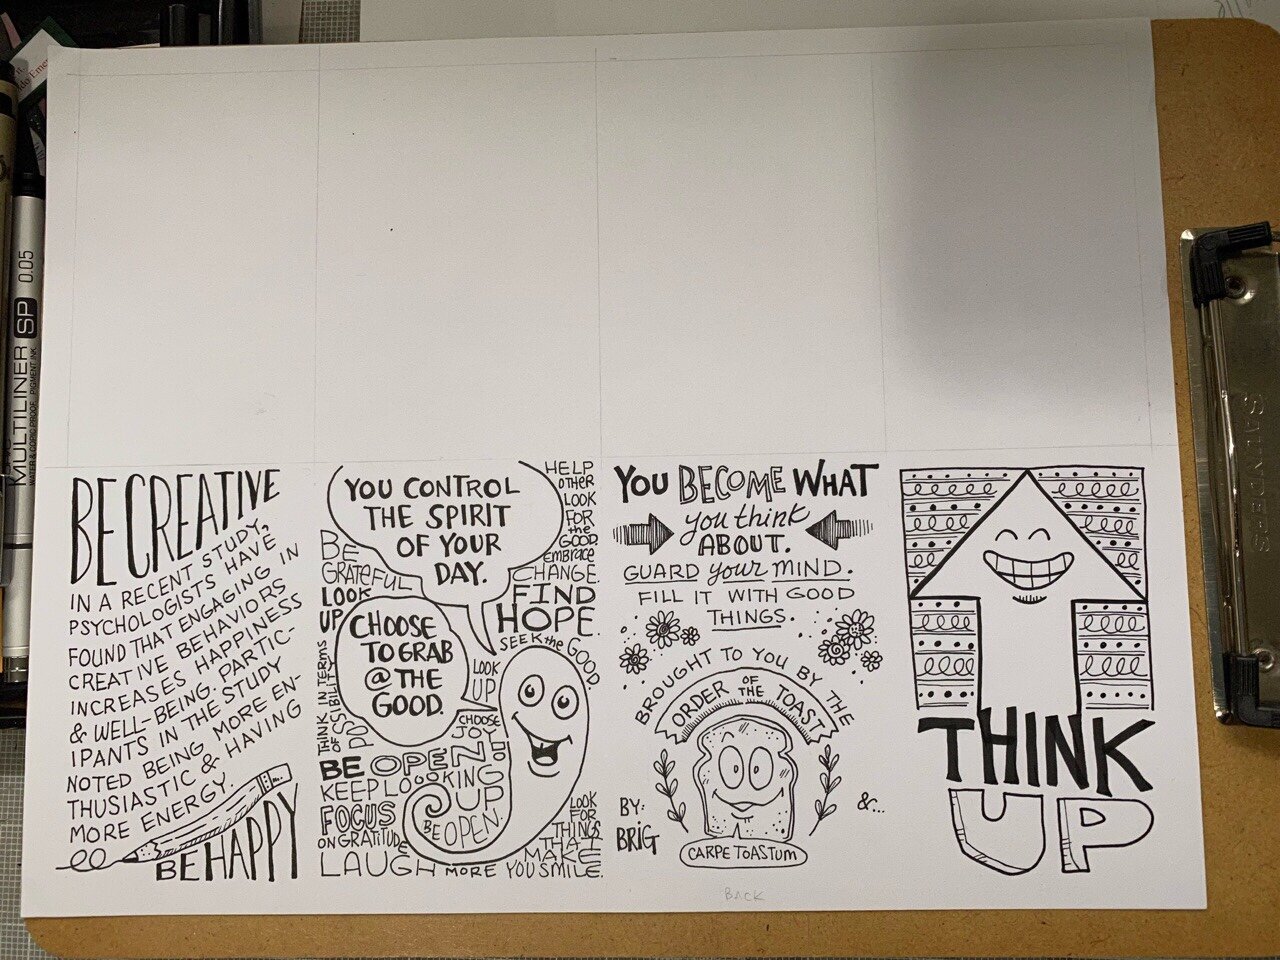 MULTILINER SP 0.05
WATER & COPIC PROOF . PIGMENT INK
BE CREATIVE
IN A RECENT STUDY,
PSYCHOLOGISTS HAVE
FOUND THAT ENGAGING IN
CREATIVE BEHAVIORS
INCREASES HAPPINESS
& WELL-BEING. PARTIC-
IPANTS IN THE STUDY
NOTED BEING MORE EN-
THUSIASTIC & HAVING
MORE ENERGY.
BE HAPPY
YOU CONTROL
THE SPIRIT
OF YOUR
DAY.
HELP
OTHER
LOOK
FOR
the
GOOD
EMBRACE
CHANGE.
FIND
HOPE.
SEEK the GOOD.
BE
GRATEFUL
LOOK
UP
CHOOSE
TO GRAB
@ THE
GOOD.
LOOK
UP
THINK IN TERMS
OF POSSIBILITY
CHOOSE
JOY
BE OPEN TO
KEEP LOOKING
UP
FOCUS
ON GRATITUDE
BE OPEN.
LAUGH MORE
LOOK
FOR
THINGS
THAT
MAKE
YOU SMILE.
YOU BECOME WHAT
you think
ABOUT.
GUARD your MIND.
FILL IT WITH GOOD
THINGS.
BROUGHT TO YOU BY THE
ORDER OF THE TOAST
BY:
BRIG
&...
CARPE TOASTUM
BACK
THINK
UP